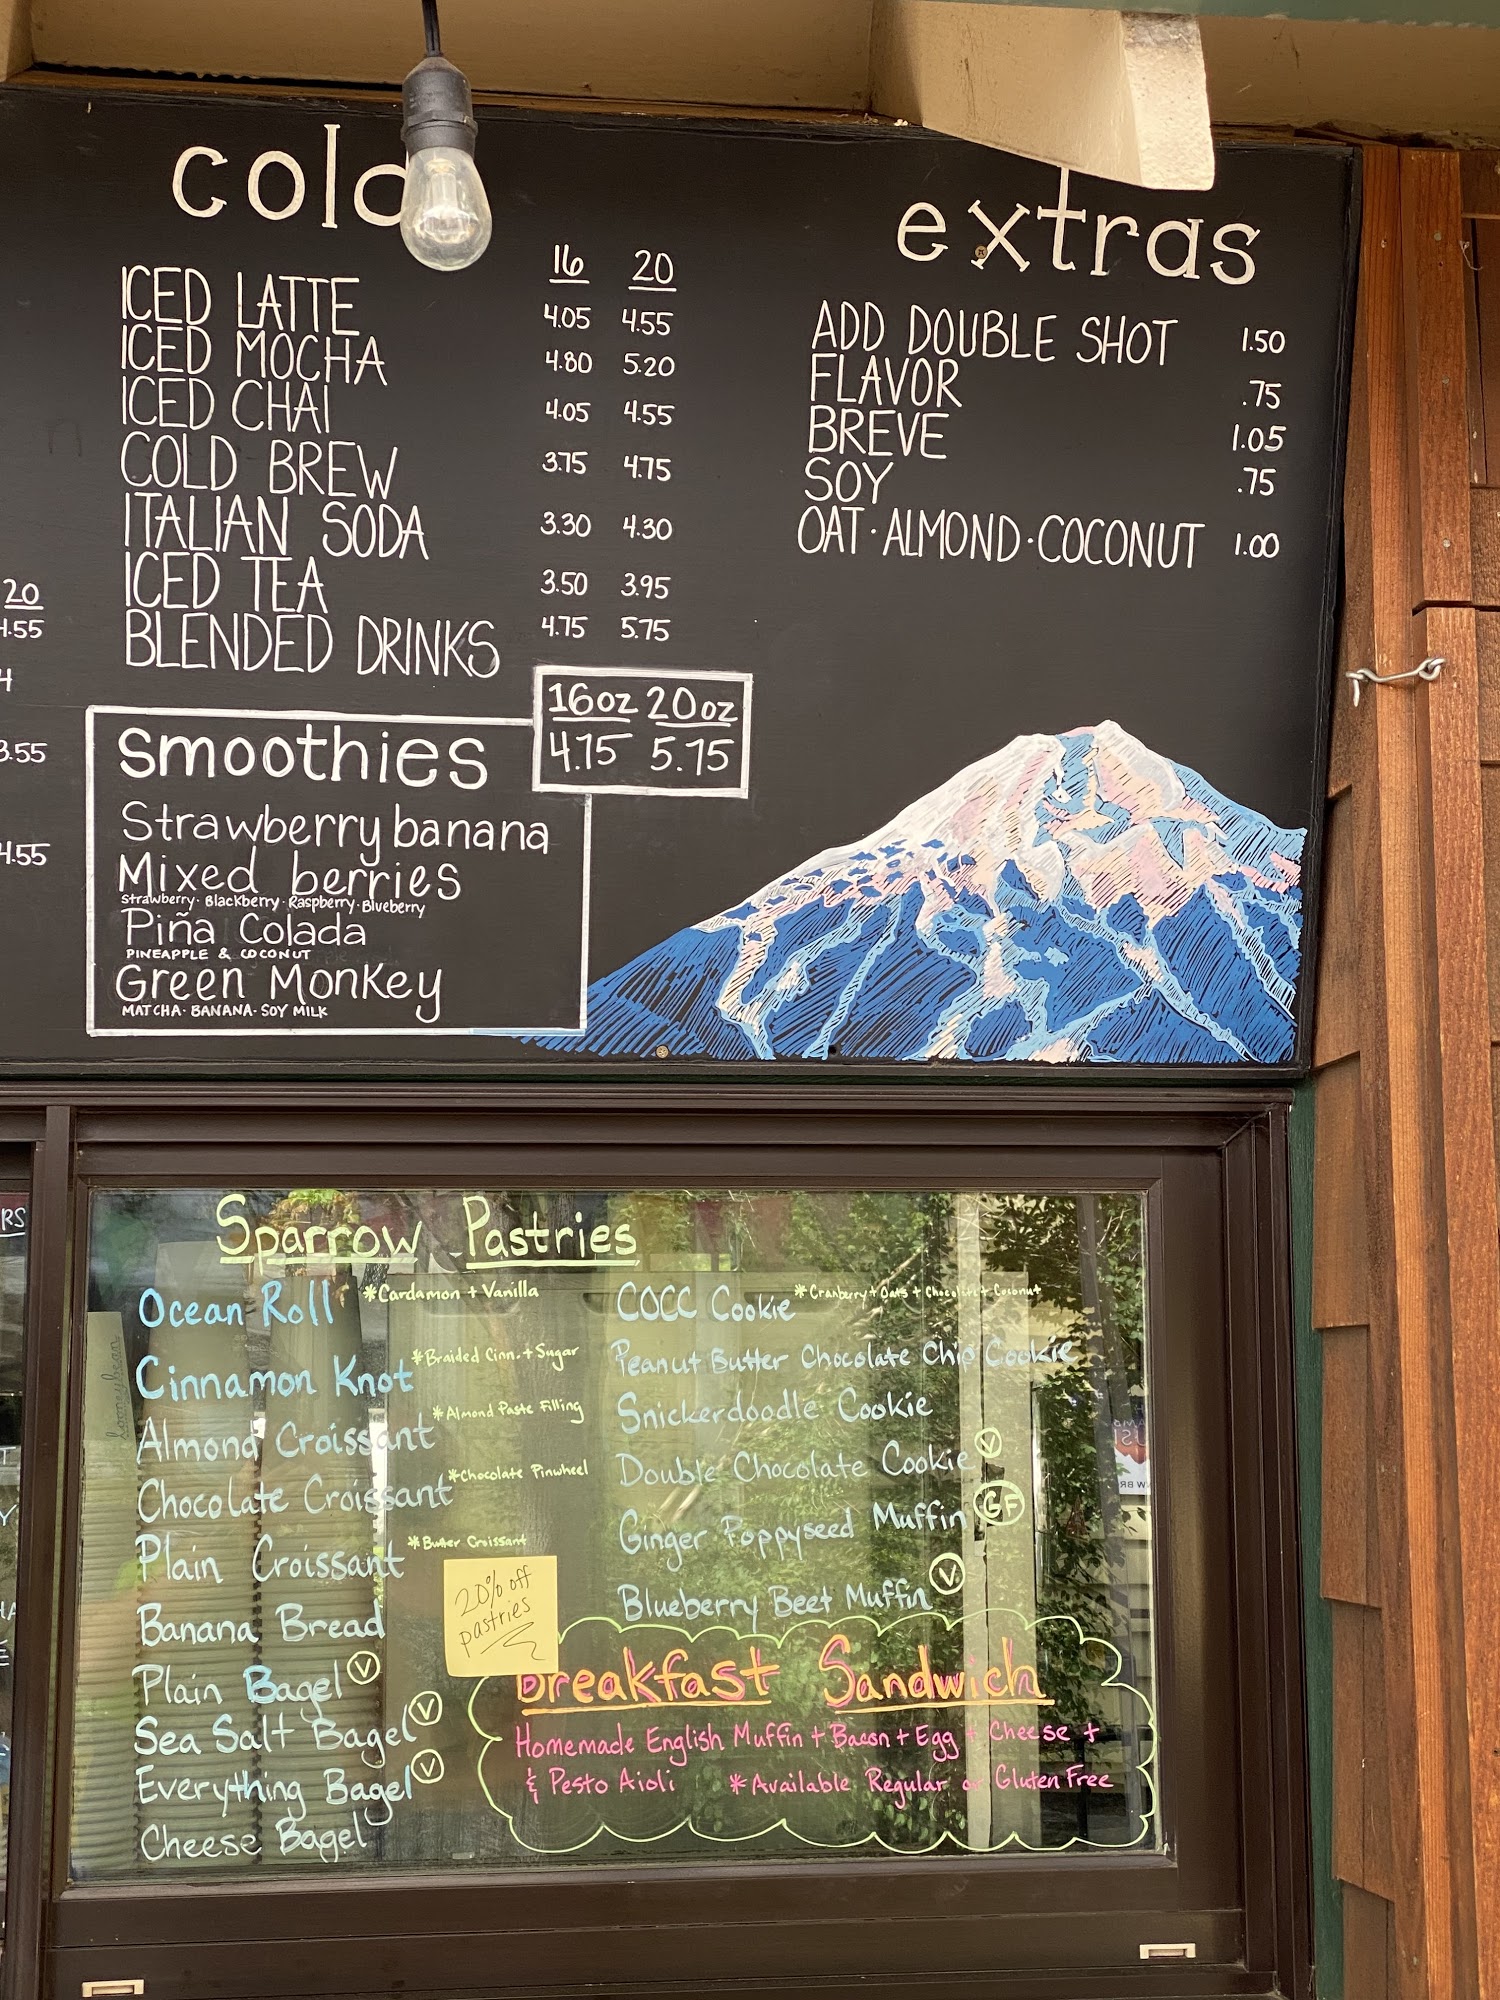 cold
16 20
ICED LATTE 4.05 4.55
ICED MOCHA 4.80 5.20
ICED CHAI 4.05 4.55
COLD BREW 3.75 4.75
ITALIAN SODA 3.30 4.30
ICED TEA 3.50 3.95
BLENDED DRINKS 4.75 5.75
16oz 20oz
4.75 5.75
smoothies
Strawberry banana
Mixed berries
Strawberry · Blackberry · Raspberry · Blueberry
Piña Colada
PINEAPPLE & COCONUT
Green Monkey
MATCHA · BANANA · SOY MILK
extras
ADD DOUBLE SHOT 1.50
FLAVOR .75
BREVE 1.05
SOY .75
OAT · ALMOND · COCONUT 1.00
20
4.55
3.55
4.55
Sparrow Pastries
Ocean Roll *Cardamon + Vanilla
Cinnamon Knot *Braided Cinn. + Sugar
Almond Croissant *Almond Paste Filling
Chocolate Croissant *Chocolate Pinwheel
Plain Croissant *Butter Croissant
Banana Bread
Plain Bagel V
Sea Salt Bagel V
Everything Bagel V
Cheese Bagel
COCC Cookie *Cranberry + Oats + Chocolate + Coconut
Peanut Butter Chocolate Chip Cookie
Snickerdoodle Cookie
Double Chocolate Cookie V
Ginger Poppyseed Muffin GF
Blueberry Beet Muffin V
20% off
pastries
Breakfast Sandwich
Homemade English Muffin + Bacon + Egg + Cheese +
& Pesto Aioli *Available Regular or Gluten Free